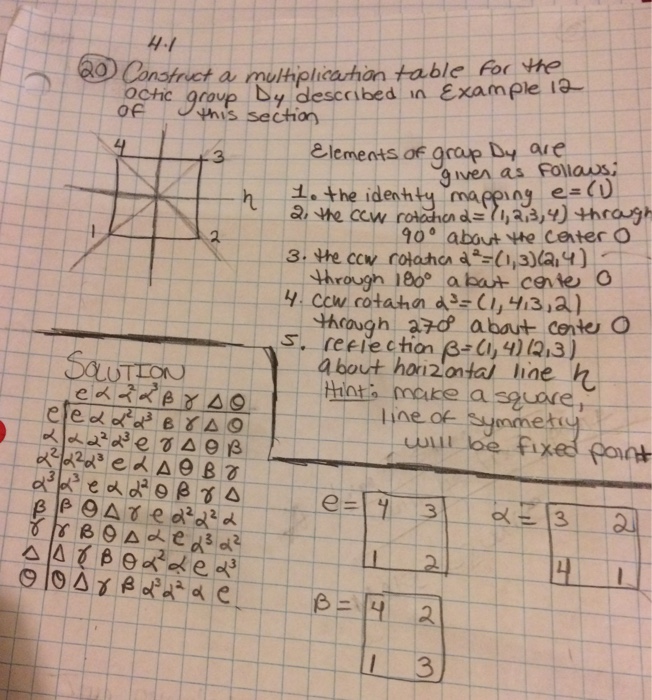 4.1
20) Construct a multiplication table for the
octic group D4 described in Example 12
of this section
4 3
h
1 2
Elements of group D4 are
given as follows:
1. the identity mapping e=(1)
2. the ccw rotation α=(1,2,3,4) through
90° about the center O
3. the ccw rotation α²=(1,3)(2,4)
through 180° about cente O
4. ccw rotation α³=(1,4,3,2)
through 270° about center O
5. reflection β=(1,4)(2,3)
about horizontal line h
Hint: make a square,
line of symmetry
will be fixed point
SOLUTION
e α α² α³ β γ Δ Θ
e e α α² α³ β γ Δ Θ
α α α² α³ e γ Δ Θ β
α² α² α³ e α Δ Θ β γ
α³ α³ e α α² Θ β γ Δ
β β Θ Δ γ e α² α² α
γ γ β Θ Δ α e α³ α²
Δ Δ γ β Θ α² α e α³
Θ Θ Δ γ β α³ α² α e
e = 4 3
1 2
α = 3 2
4 1
β = 4 2
1 3